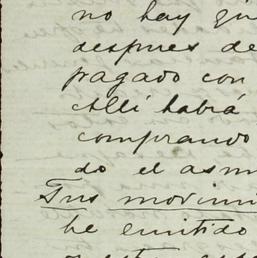 no hay que
despues de
pagado con
Allí habrá
comprando
do el asun
Tus movimi
he emitido